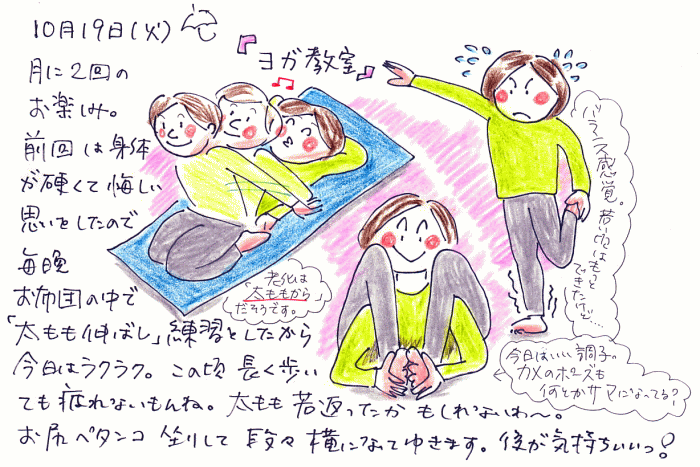 10月19日(火)
『ヨガ教室』
月に2回の
お楽しみ。
前回は身体
が硬くて悔しい
思いをしたので
毎晩
お布団の中で
「太もも伸ばし」練習をしたから
今日はラクラク。この頃 長く歩い
ても疲れないもんね。太もも若返ったかもしれないわ〜。
お尻ペタンコ坐りして 段々横になってゆきます。後が気持ちいいっ!
老化は
太ももから
だそうです。
バランス感覚。
若い頃はもっと
できたけど…
今日はいい調子の
カメのポーズも
何とかサマになってる?